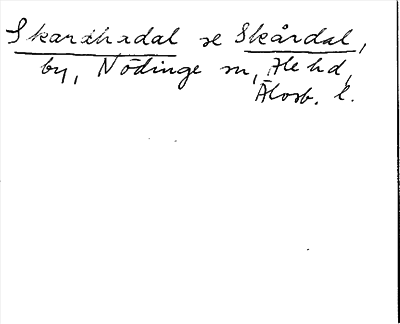 Skardhadal se Skårdal,
by, Nödinge sn, Ale hd,
Älvsb. l.